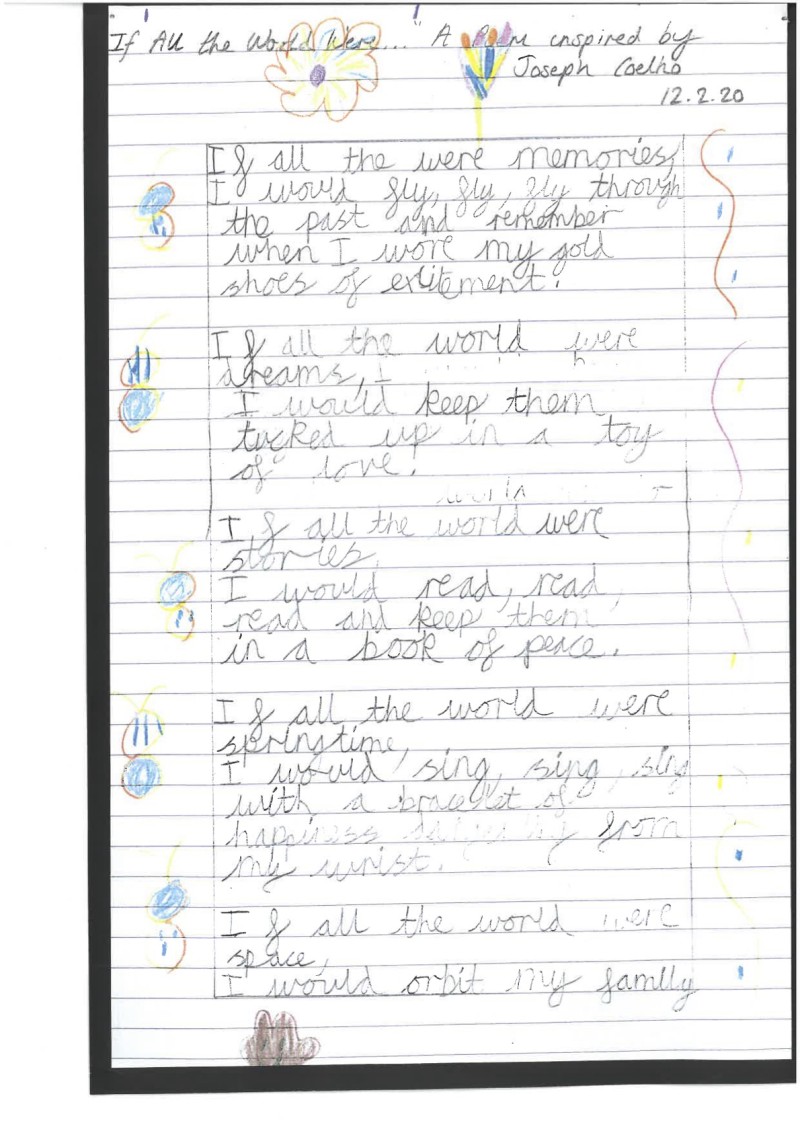 If All the World Were..." A Poem inspired by
Joseph Coelho
12.2.20
If all the were memories,
I would fly, fly, fly through
the past and remember
when I wore my gold
shoes of exitement.
If all the world were
dreams, I
I would keep them
tucked up in a toy
of love.
world
If all the world were
stories,
I would read, read,
read and keep them
in a book of peace.
If all the world were
springtime,
I would sing, sing, sing
with a bracelet of
happiness from
my wrist.
If all the world were
space,
I would orbit my family